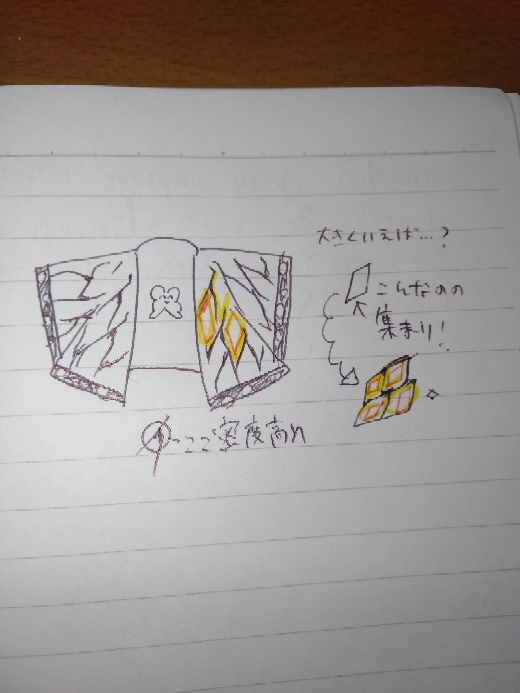 大きくいえば…?
こんなのの
集まり!
ここ密度高い